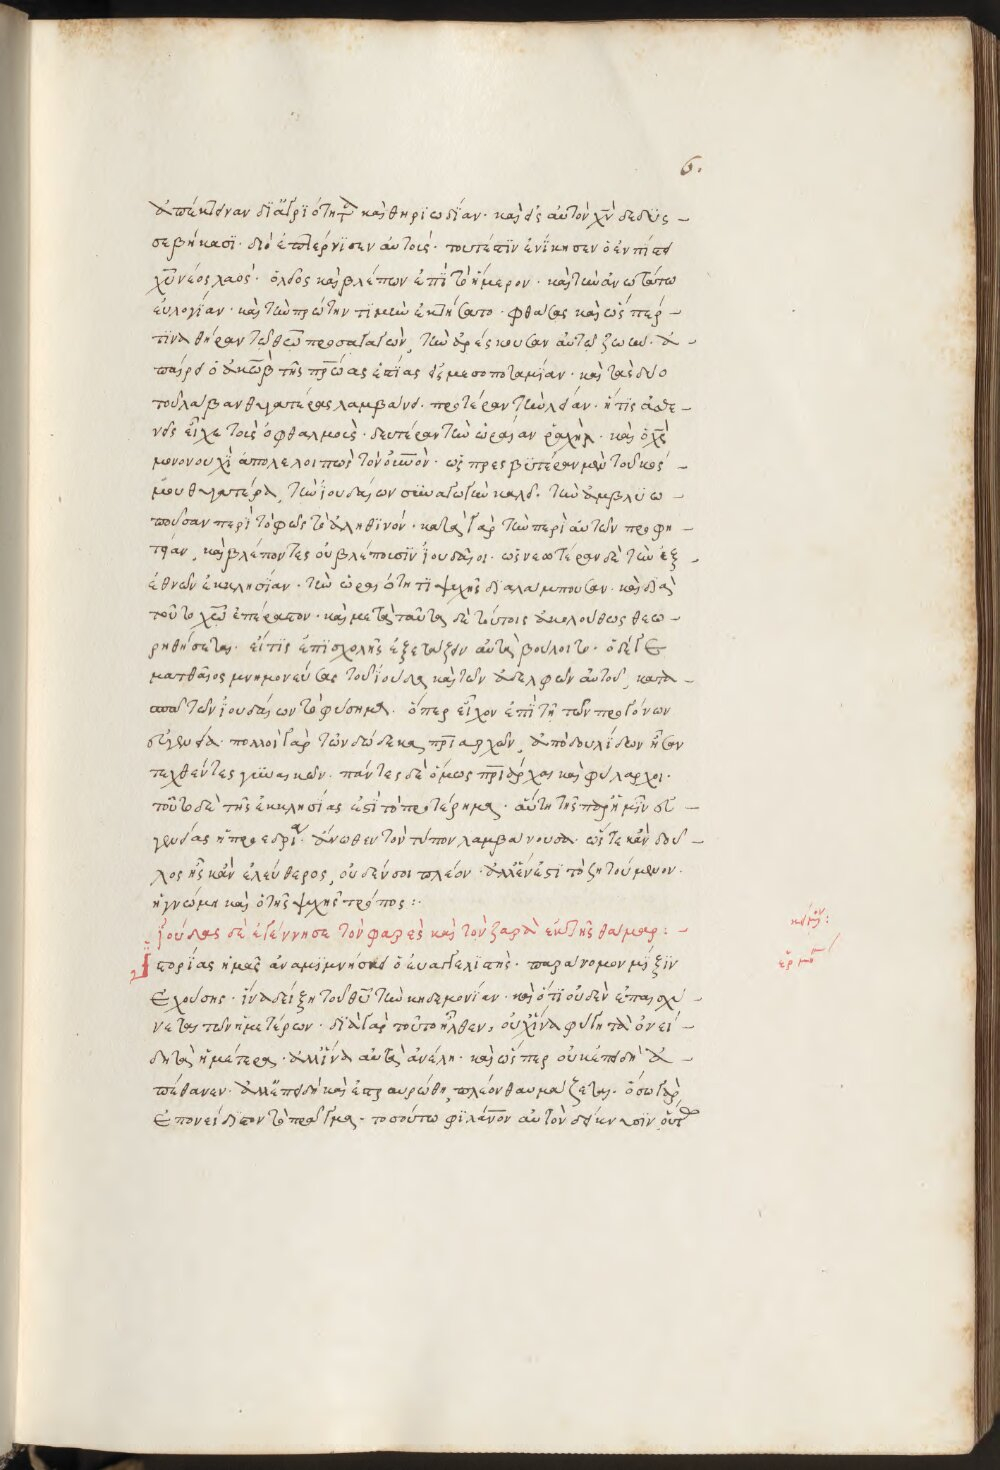 6.
ἀπέκτειναν δι᾽ ἀγριότητα καὶ θηριωδίαν· καὶ εἰς αὐτὸν χν δεδυς-
σεβήκασι· διὸ ἐπτέρνισεν αὐτοὺς· τουτέστιν ἐνίκησεν ὁ ἐν πίστει
χυ νέος λαὸς· ὅλος καὶ βλέπων ἐπὶ τὸ ἥμερον· καὶ τὴν ἀνωτάτω
εὐλογίαν· καὶ τὴν πρώτην τιμὴν ἐκτήσατο· φθάσας καὶ ὥσπερ
τινὰ θήραν τῶ θεῶ προσαγαγὼν, τὴν ἀρέσκουσαν αὐτῶ ζωὴν· ἀ-
παίρει ὁ ἰακὼβ τῆς πρώας ἑστίας εἰς μεσοποταμίαν· καὶ τὰς δύο
τοῦ λάβαν θυγατέρας λαμβάνει· προτέραν τὴν λείαν· ἥτις ἀσθε-
νεῖς εἶχε τοὺς ὀφθαλμοὺς· δευτέραν τὴν ὡραίαν ῥαχὴλ· καὶ ὁ χς
μονονουχὶ ἀπολελοιπὼς τὸν οὐνον· ὡς πρεσβυτέραν μὲν τοῦ κός-
μου θυγατέρα, τὴν ἰουδαίων συναγωγὴν καλεῖ· τὴν ἀμβλυώ-
πουσαν περὶ τὸ φῶς τὸ ἀληθινόν· κατὰ γὰρ τὴν περὶ αὐτῶν προφη-
τείαν, καὶ βλέποντες οὐ βλέπουσιν ἰουδαῖοι· ὡς νεωτέραν δὲ τὴν ἐξ
ἐθνῶν ἐκκλησίαν· τὴν ὡραιότητι ψυχῆς διαλάμπουσαν· καὶ διὰ
τοῦτο χῶ ἐπέραστον· καὶ μετὰ ταῦτα δὲ τούτοις ἀκολούθως θεω-
ρηθήσεται· εἴ τις ἐπὶ σχολῆς ἐξετάζειν αὐτὰ βούλοιτο· ὁ δέ γε
ματθαῖος μνημονεύσας τοῦ ἰούδα καὶ τῶν ἀδελφῶν αὐτοῦ, κατα-
σπᾶ τῶν ἰουδαίων τὸ φύσημα· ὅπερ εἶχον ἐπὶ τῆ τῶν προγόνων
εὐγενεία· πολλοὶ γὰρ τῶν δώδεκα πριαρχῶν, ἀπὸ δουλίδων ἦσαν
τεχθέντες γυναικῶν· πάντες δὲ ὅμως πριάρχαι καὶ φύλαρχοι·
τοῦτο δὲ τῆς ἐκκλησίας ἐστὶ τὸ προτέρημα· αὕτη τῆς παρ᾽ ἡμῖν εὐ-
γενείας ἡ προεδρία· ἄνωθεν τὸν τύπον λαμβάνουσα· ὥστε κἂν δοῦ-
λος ἦς κἂν ἐλεύθερος, οὐδέν σοι πλέον· ἀλλ᾽ ἕν ἐστι τὸ ζητούμενον·
ἡ γνώμη καὶ ὁ τῆς ψυχῆς τρόπος:
Ἰούδας δὲ ἐγέννησε τὸν φαρὲς καὶ τὸν ζαρὰ ἐκ τῆς θάμαρ:
Ἱστορίας ἡμᾶς ἀναμιμνήσκει ὁ εὐαγγελιστὴς· παράνομον μίξιν
ἐχούσης· ἵνα δείξη τοῦ θυ τὴν κηδεμονίαν· καὶ ὅτι οὐδὲν ἐπαισχύ-
νεται τῶν ἡμετέρων· διὰ γὰρ τοῦτο ἦλθεν, οὐχ ἵνα φύγη τὰ ὀνεί-
δη τὰ ἡμέτερα· ἀλλ᾽ ἵνα αὐτὰ ἀνέλη· καὶ ὥσπερ οὐκ ἐπειδὴ ἀ-
πέθανεν· ἀλλ᾽ ἐπειδὴ καὶ ἐσταυρώθη πλέον θαυμάζεται· ὅσω γὰρ
ἐπονείδιστον τὸ πρᾶγμα· τοσούτω φιλάνον αὐτὸν δείκνυσιν οὕτ